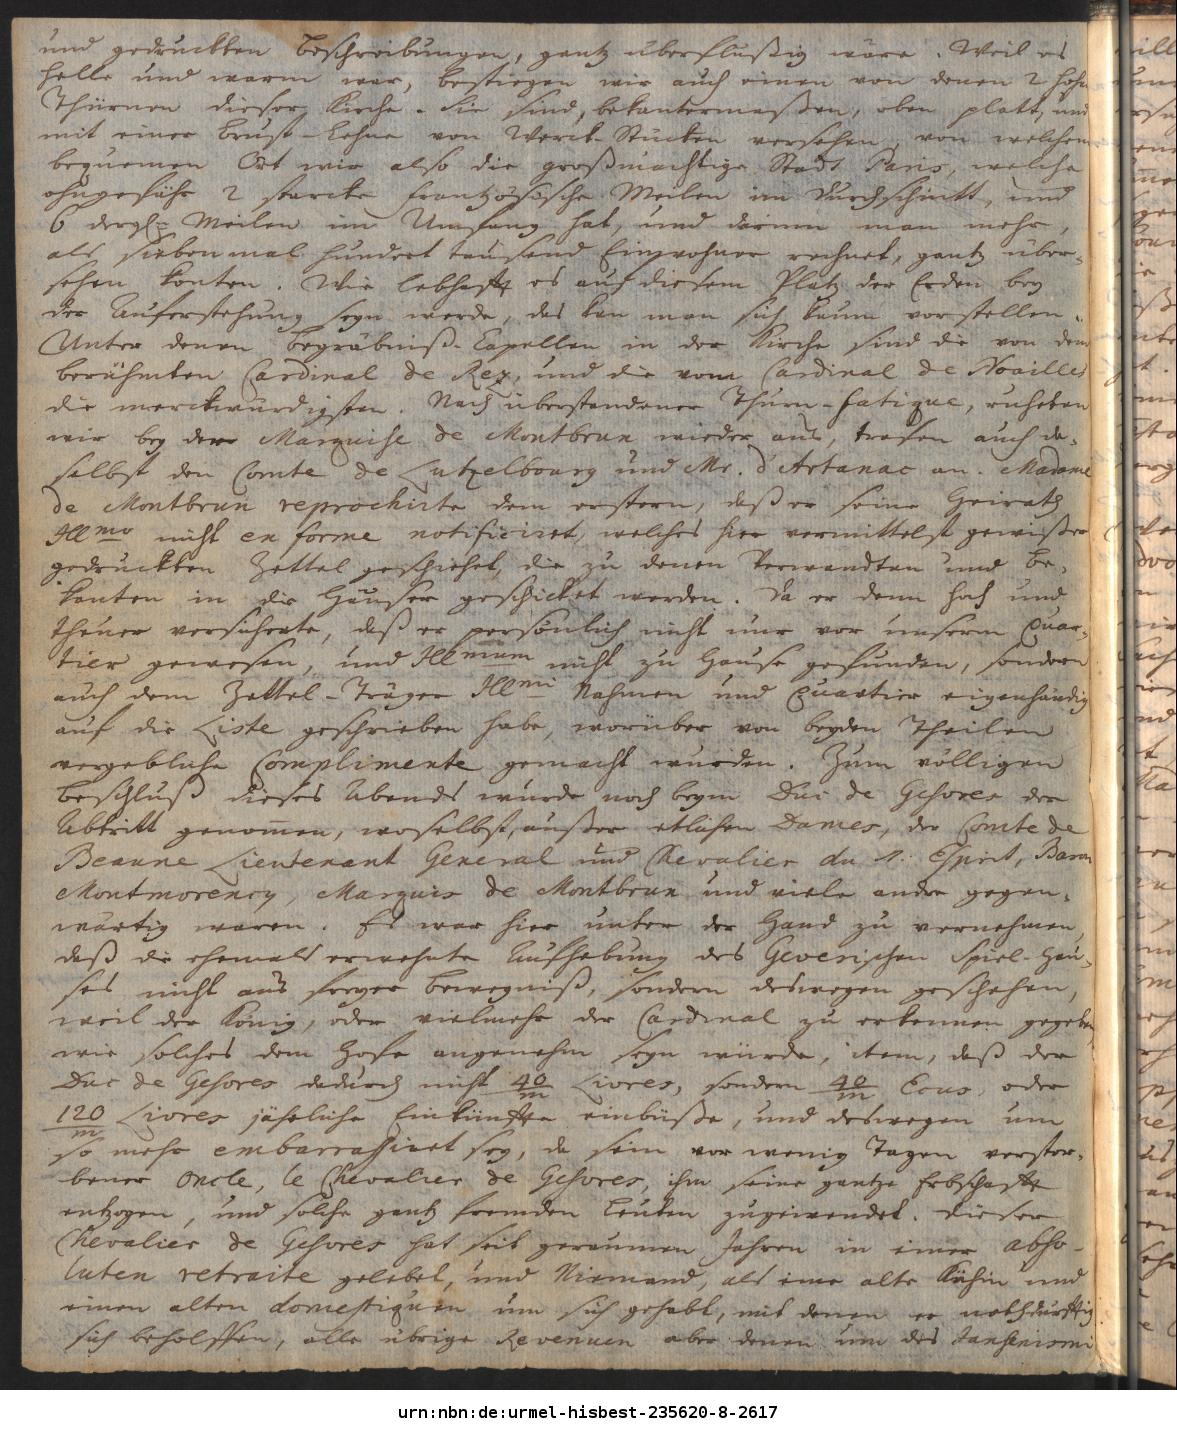 und gedruckten Beschreibungen, gantz überflüßig wäre. Weil es
helle und warm war, bestiegen wir auch einen von denen 2 hohen
Thürnen dieser Kirche. Sie sind, bekantermaßen, oben platt, und
mit einer Brust-Lehne von Werck-Stücken versehen, von welchem
bequemen Ort wir also die großmächtige Stadt Paris, welche
ohngefähr 2 starcke frantzösische Meilen im Durchschnitt, und
6 dergl. Meilen im Umfang hat, und darinn man mehr,
als siebenmal hundert tausend Einwohner rechnet, gantz über-
sehen konten. Wie lebhafft es auf diesem Platz der Erden bey
der Auferstehung seyn werde, das kan man sich kaum vorstellen.
Unter denen Begräbniß-Capellen in der Kirche sind die von dem
berühmten Cardinal de Rez, und die vom Cardinal de Noailles
die merckwürdigsten. Nach überstandener Thurn-fatique, ruheten
wir bey der Marquise de Montbrun wieder aus, trafen auch da-
selbst den Comte de Lutzelbourg und Mr. d'Artanac an. Madame
de Montbrun reprochirte dem erstern, daß er seine Heirath
Illmo nicht en forme notificiret, welches hier vermittelst gewißer
gedruckten Zettel geschiehet, die zu denen Verwandten und Be-
kanten in die Häuser geschicket werden. Da er denn hoch und
theuer versicherte, daß er persönlich nicht nur vor unserm Quar-
tier gewesen, und Illmum nicht zu Hause gefunden, sondern
auch dem Zettel-Träger Illmi Nahmen und Quartier eigenhändig
auf die Liste geschrieben habe, worüber von beyden Theilen
vergebliche Complimente gemacht wurden. Zum völligen
Beschluß dieses Abends wurde noch beym Duc de Gesvres der
Abtritt genommen, woselbst, außer etlichen Dames, der Comte de
Beaune Lieutenant General und Chevalier du S. Esprit, Baron
Montmorency, Marquis de Montbrun und viele andre gegen-
wärtig waren. Es war hier unter der Hand zu vernehmen,
daß die ehemals erwehnte Aufhebung des Gevrischen Spiel-Hau-
ses nicht aus freyer Bewegniß, sondern deswegen geschehen,
weil der König, oder vielmehr der Cardinal zu erkennen gegeben,
wie solches dem Hofe angenehm seyn würde, item, daß der
Duc de Gesvres dadurch nicht 40/m Livres, sondern 40/m Ecus, oder
120/m Livres jährliche Einkünffte einbüße, und deswegen um
so mehr embarrassiret sey, da sein vor wenig Tagen verstor-
bener Oncle, le Chevalier de Gesvres, ihm seine gantze Erbschafft
entzogen, und solche gantz fremden Leuten zugewendet. Dieser
Chevalier de Gesvres hat seit geraumen Jahren in einer abso-
luten retraite gelebet, und Niemand, als eine alte Köchin und
einen alten domestiquen um sich gehabt, mit denen er nothdürfftig
sich beholffen, alle übrige Revenuen aber denen um des Jansenismi
urn:nbn:de:urmel-hisbest-235620-8-2617